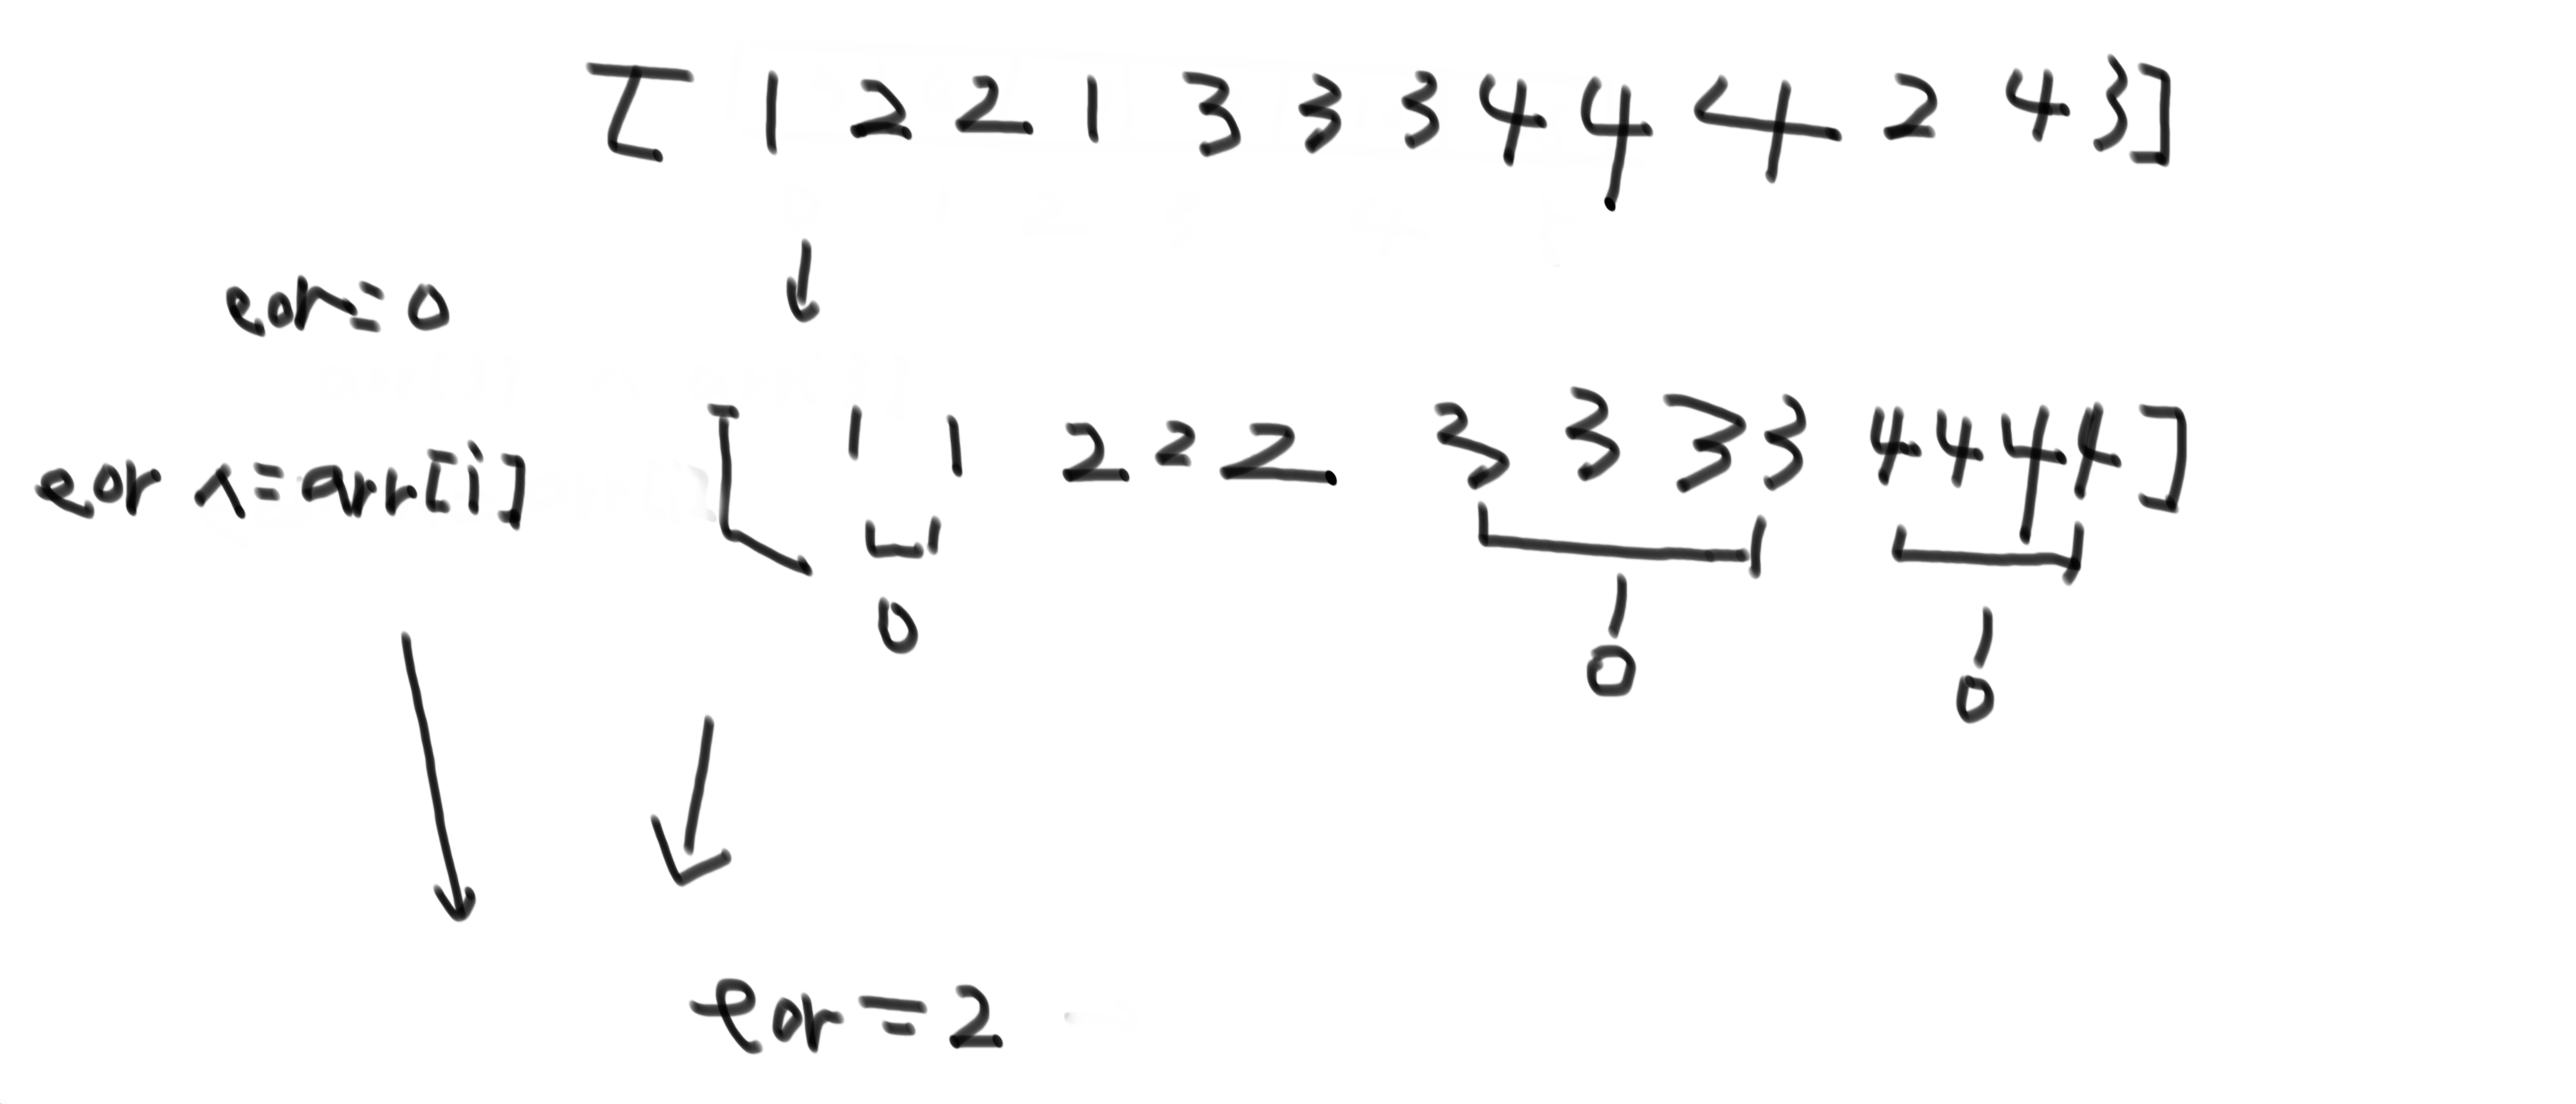 [ 1 2 2 1 3 3 3 4 4 4 2 4 3]
eor=0
eor ^=arr[i] [ 1 1 2 2 2 3 3 3 3 4 4 4 4 ]
0 0 0
eor=2